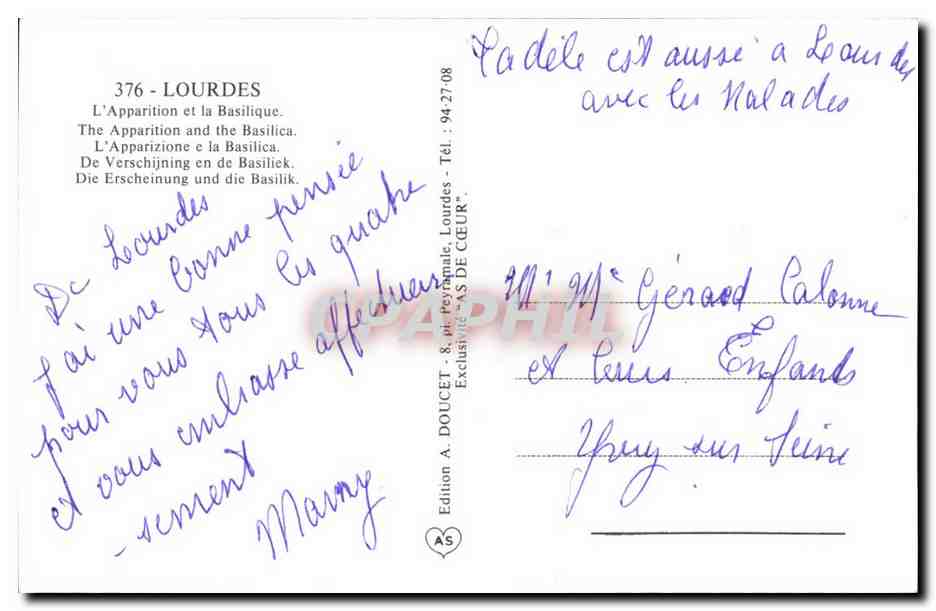 376 - LOURDES
L'Apparition et la Basilique.
The Apparition and the Basilica.
L'Apparizione e la Basilica.
De Verschijning en de Basiliek.
Die Erscheinung und die Basilik.
De Lourdes
j'ai une bonne pensée
pour vous tous les quatre
et vous embrasse affectueu
-sement
Mamy
Edition A. DOUCET - 8, pl. Peyramale, Lourdes - Tél. : 94-27-08
Exclusivité "AS DE CŒUR".
AS
CPAPHIL
est aussi a Lourdes
avec les Malades
Mr Me Gérard Calonne
et leurs Enfants
Yvry sur Seine